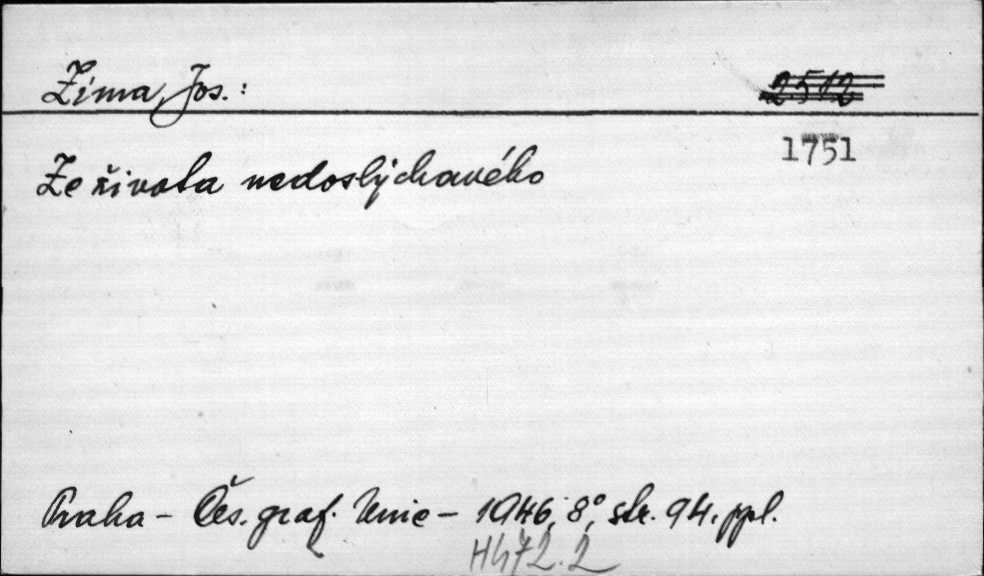 Zima, Jos.:
2512
1751
Ze života nedoslýchavého
Praha – Čes. graf. Unie – 1946, 8°, str. 94. ppl.
H472.2